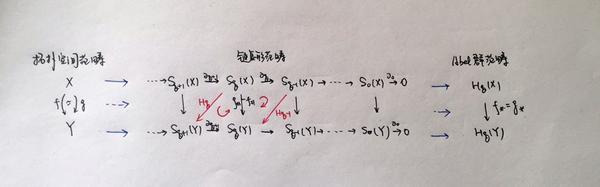 拓扑空间范畴 链复形范畴 Abel群范畴
X → ⋯→ S_{q+1}(X) →^{∂_{q+1}} S_q(X) →^{∂_q} S_{q-1}(X) →⋯→ S_0(X) →^{∂_0} 0 → H_q(X)
H_q H_{q-1} f_*=g_*
Y → ⋯→ S_{q+1}(Y) →^{∂_{q+1}} S_q(Y) → S_{q-1}(Y) →⋯→ S_0(Y) →^{∂_0} 0 → H_q(Y)